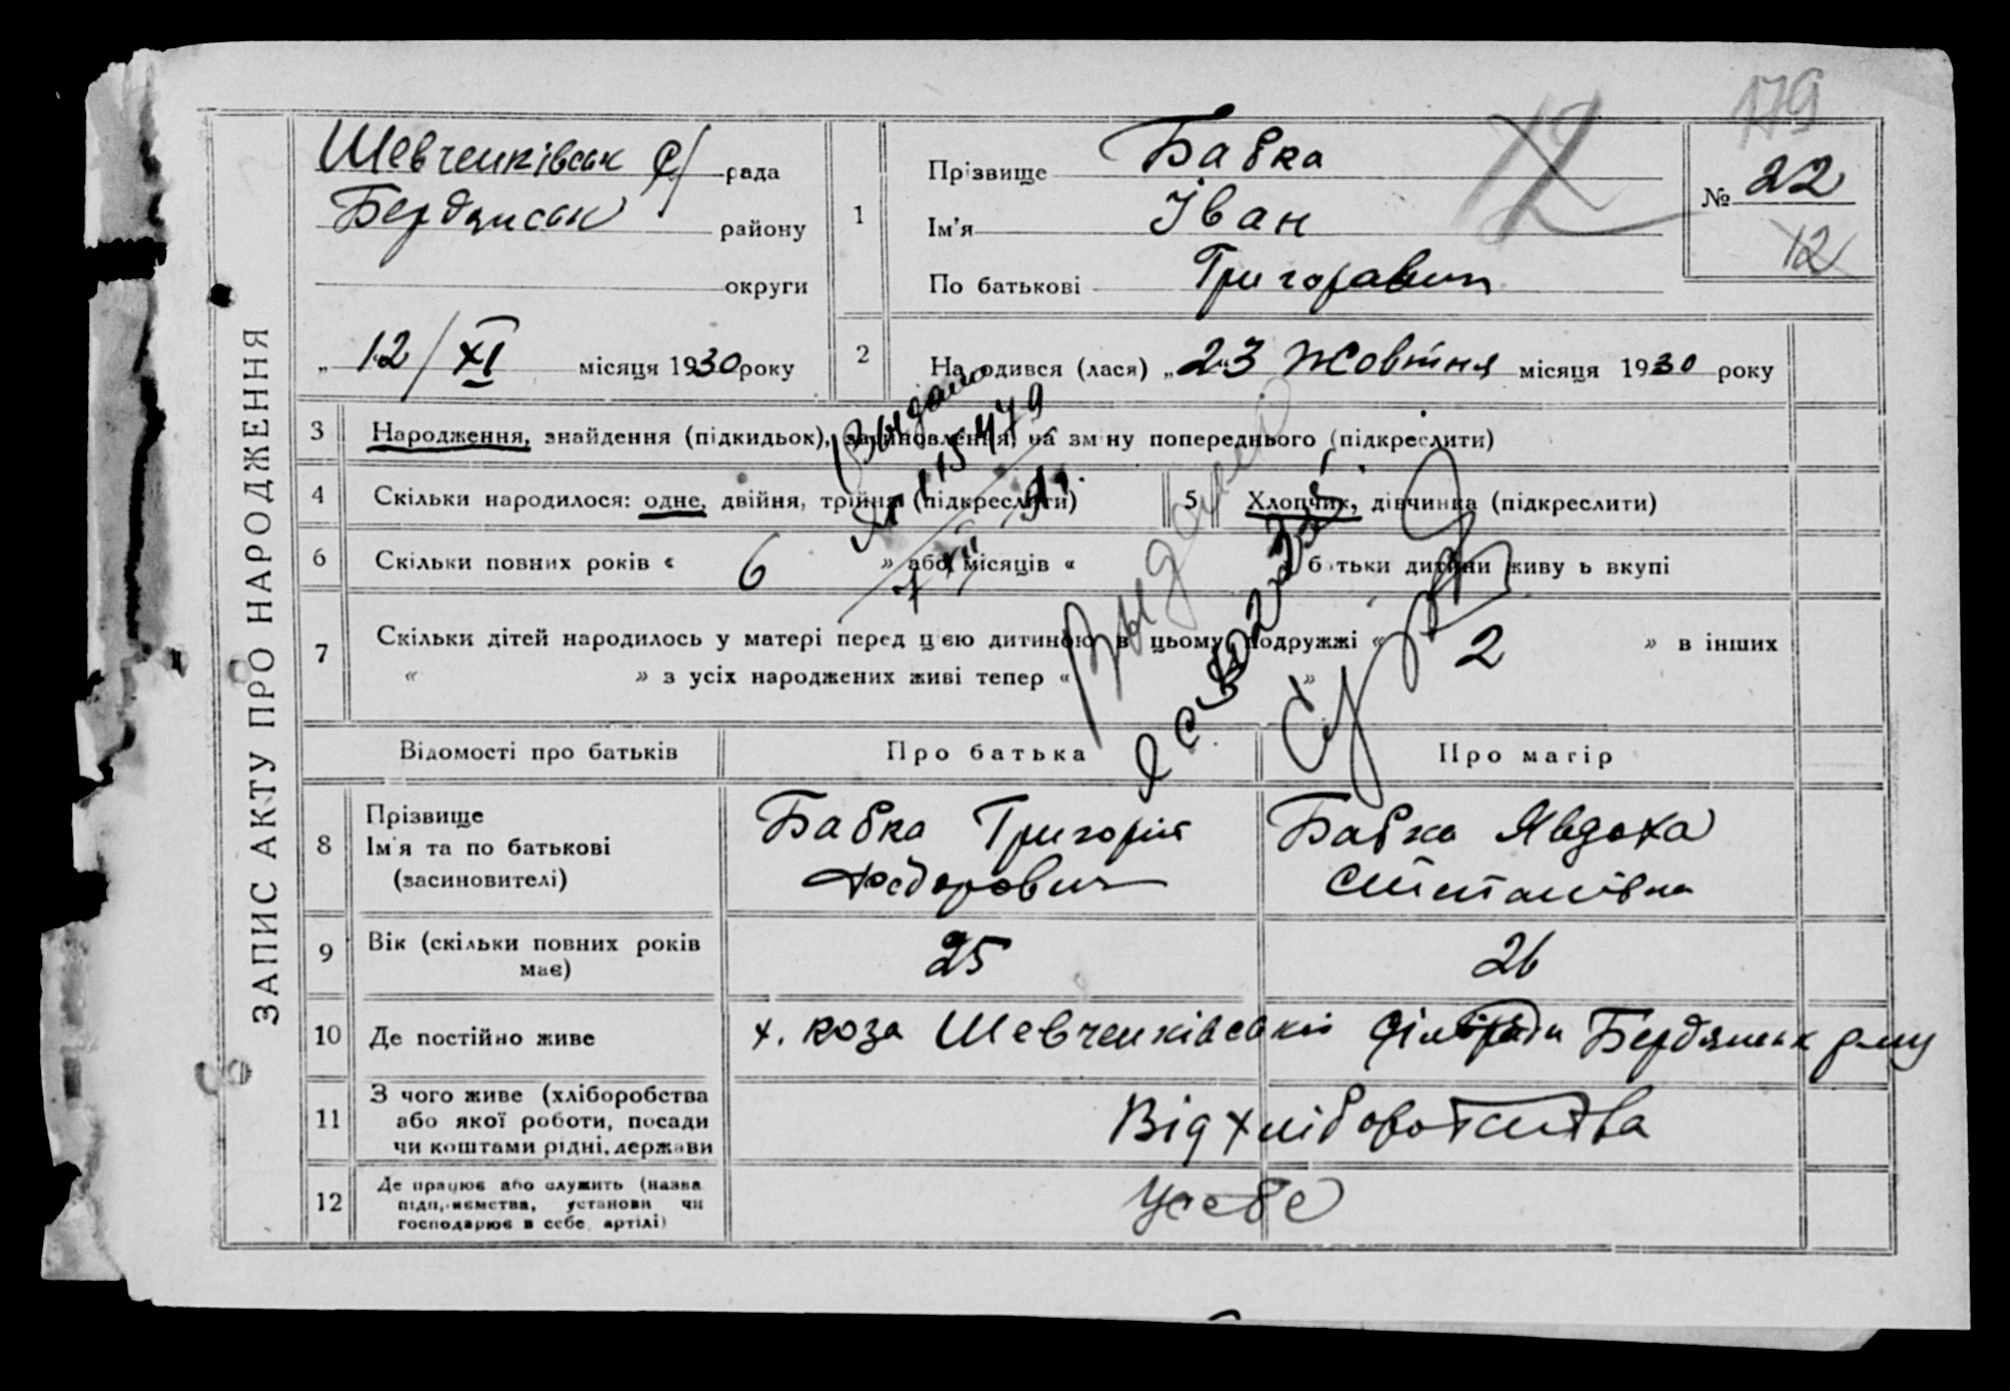 179
ЗАПИС АКТУ ПРО НАРОДЖЕННЯ
Шевченківськ с/ рада
Бердянськ району
округи
„ 12/XI місяця 1930 року
1
Прізвище Бабка
Ім'я Іван
По батькові Григорович
№ 22
12
2 Народився (лася) „ 23 жовтня місяця 1930 року
3 Народження, знайдення (підкидьок), засиновлення, на зміну попереднього (підкреслити)
4 Скільки народилося: одне, двійня, трійня (підкреслити)
5 Хлопчик, дівчинка (підкреслити)
6 Скільки повних років « 6 » або місяців « батьки дитини живуть вкупі
7 Скільки дітей народилось у матері перед цією дитиною в цьому подружжі « 2 » в інших
« » з усіх народжених живі тепер « »
Выдано
115479
Выдано
Відомості про батьків
Про батька
Про матір
8 Прізвище
Ім'я та по батькові
(засиновителі)
Бабка Григорій
Федорович
Бабка Явдоха
Степанівна
9 Вік (скільки повних років
має)
25
26
10 Де постійно живе
х. коза Шевченківської сільради Бердянськ р-ну
11 З чого живе (хліборобства
або якої роботи, посади
чи коштами рідні, держави
Від хліборобства
12 Де працює або служить (назва
підприємства, установи чи
господарює в себе, артілі)
У себе